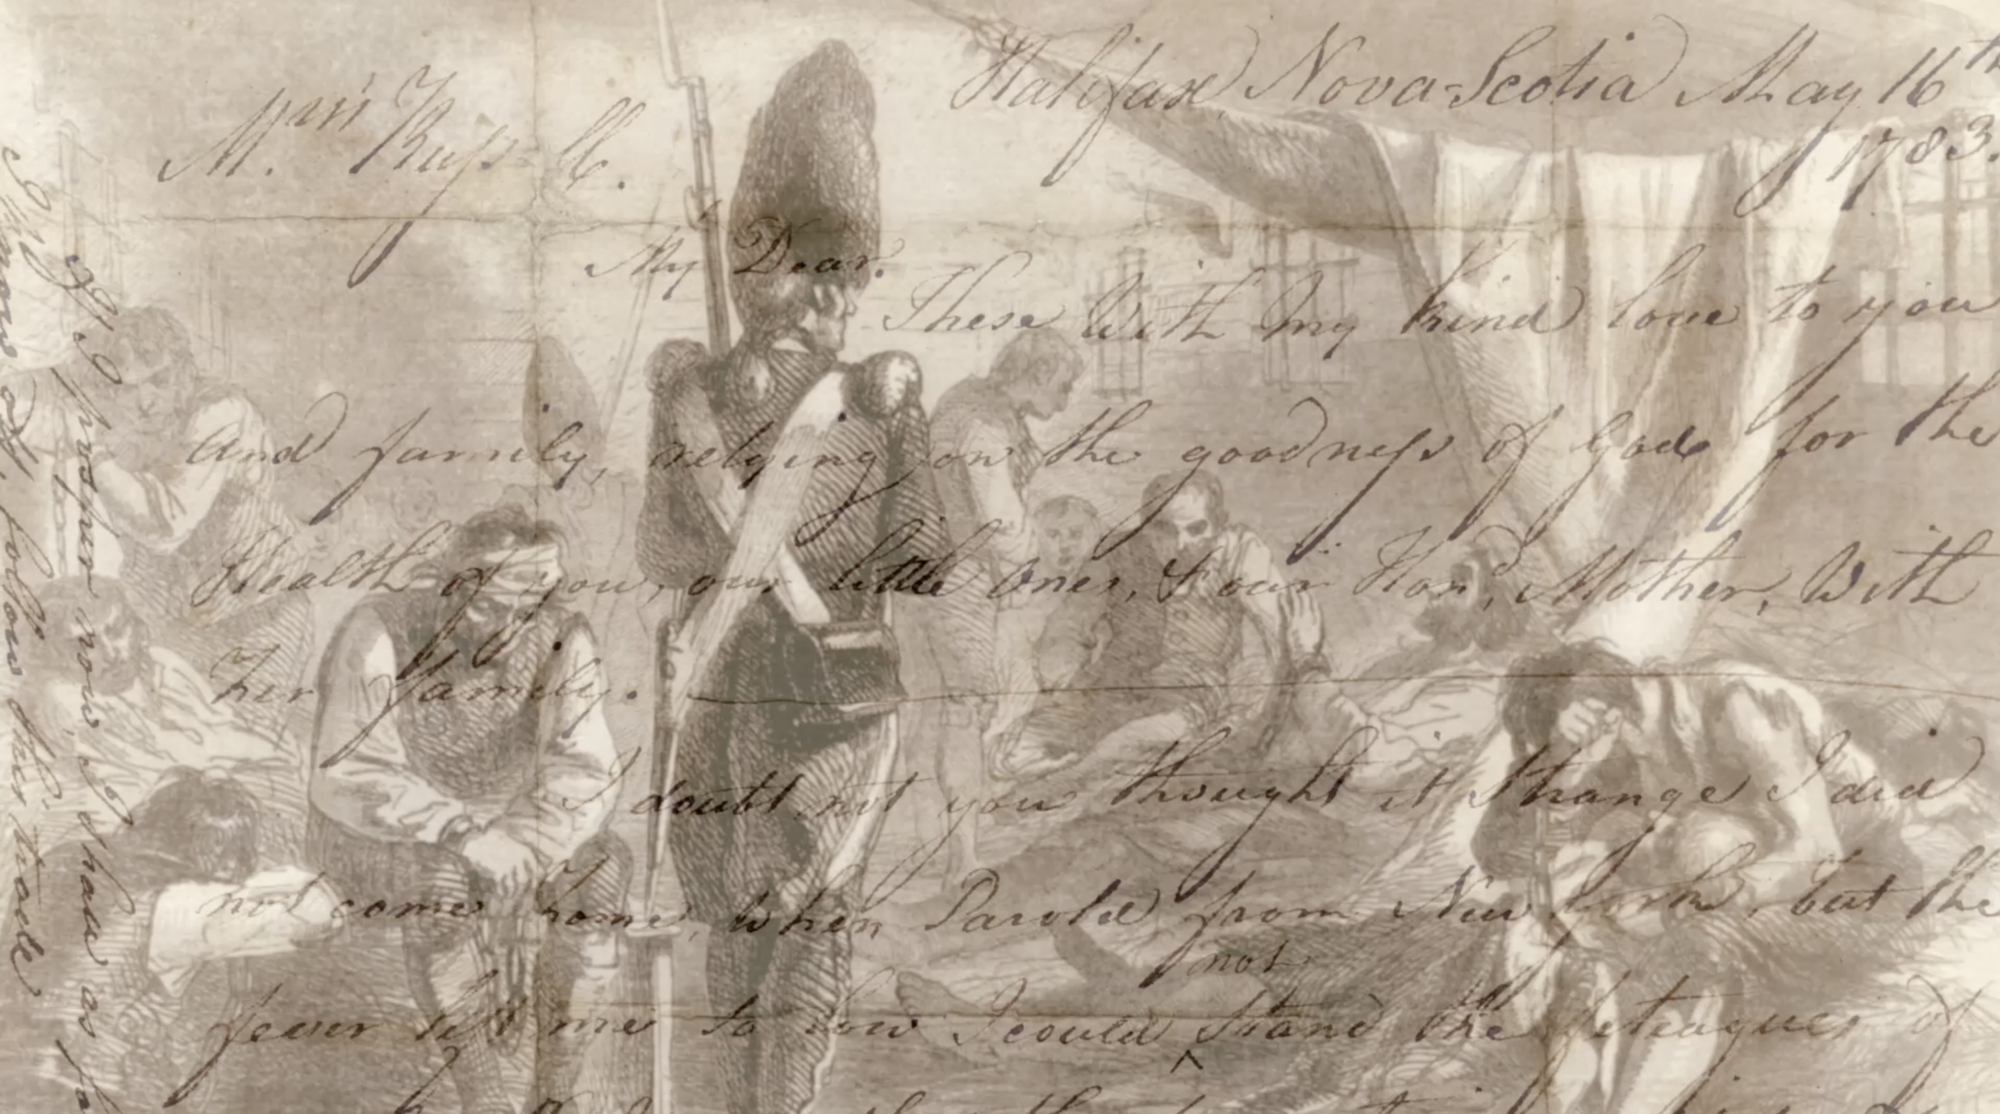 Halifax, Nova-Scotia May 16th
1783.
Mrs Russell.
My Dear.
These With my kind love to you
And family, relying on the goodness of God for the
Health of you, our little Ones, & our Hond, Mother, With
her family.
I doubt not you thought it strange I did
not come home, when Parold from New York, but the
fever left me so low I could not stand the feteagues of
If I prosper now, I shall as